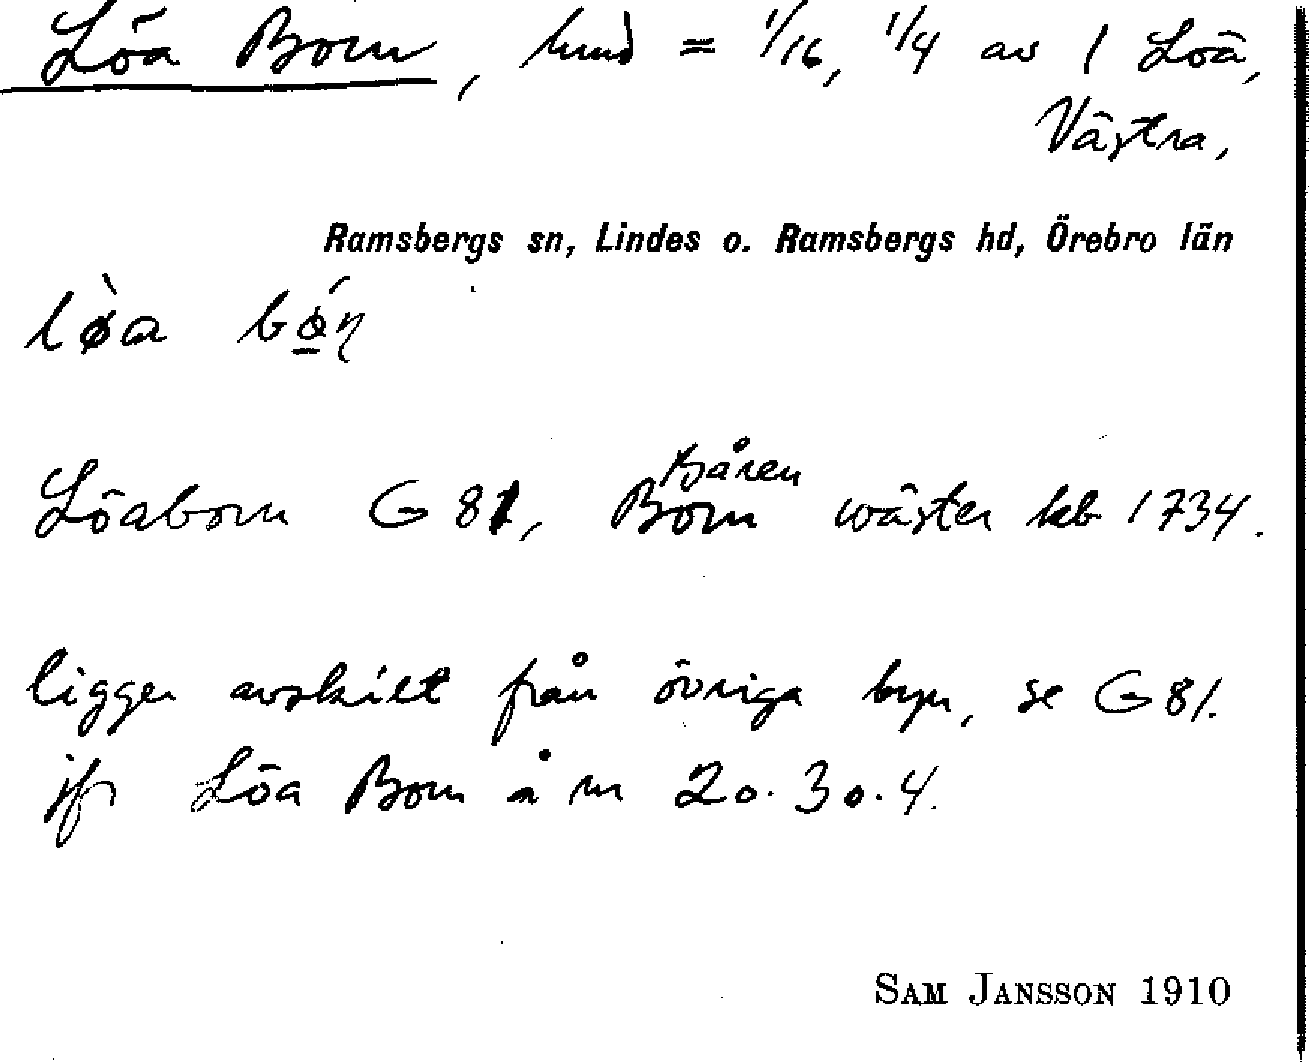 Löa Born, hmd = 1/16, 1/4 av 1 Löa,
Västra,
Ramsbergs sn, Lindes o. Ramsbergs hd, Örebro län
lø̀a bǿ̱ɳ
Båren
Löaborn G 81, Born wäster kb 1734.
ligger avskilt från övriga byn, se G 81.
jfr Löa Born å nr 2 o. 3 o. 4.
SAM JANSSON 1910